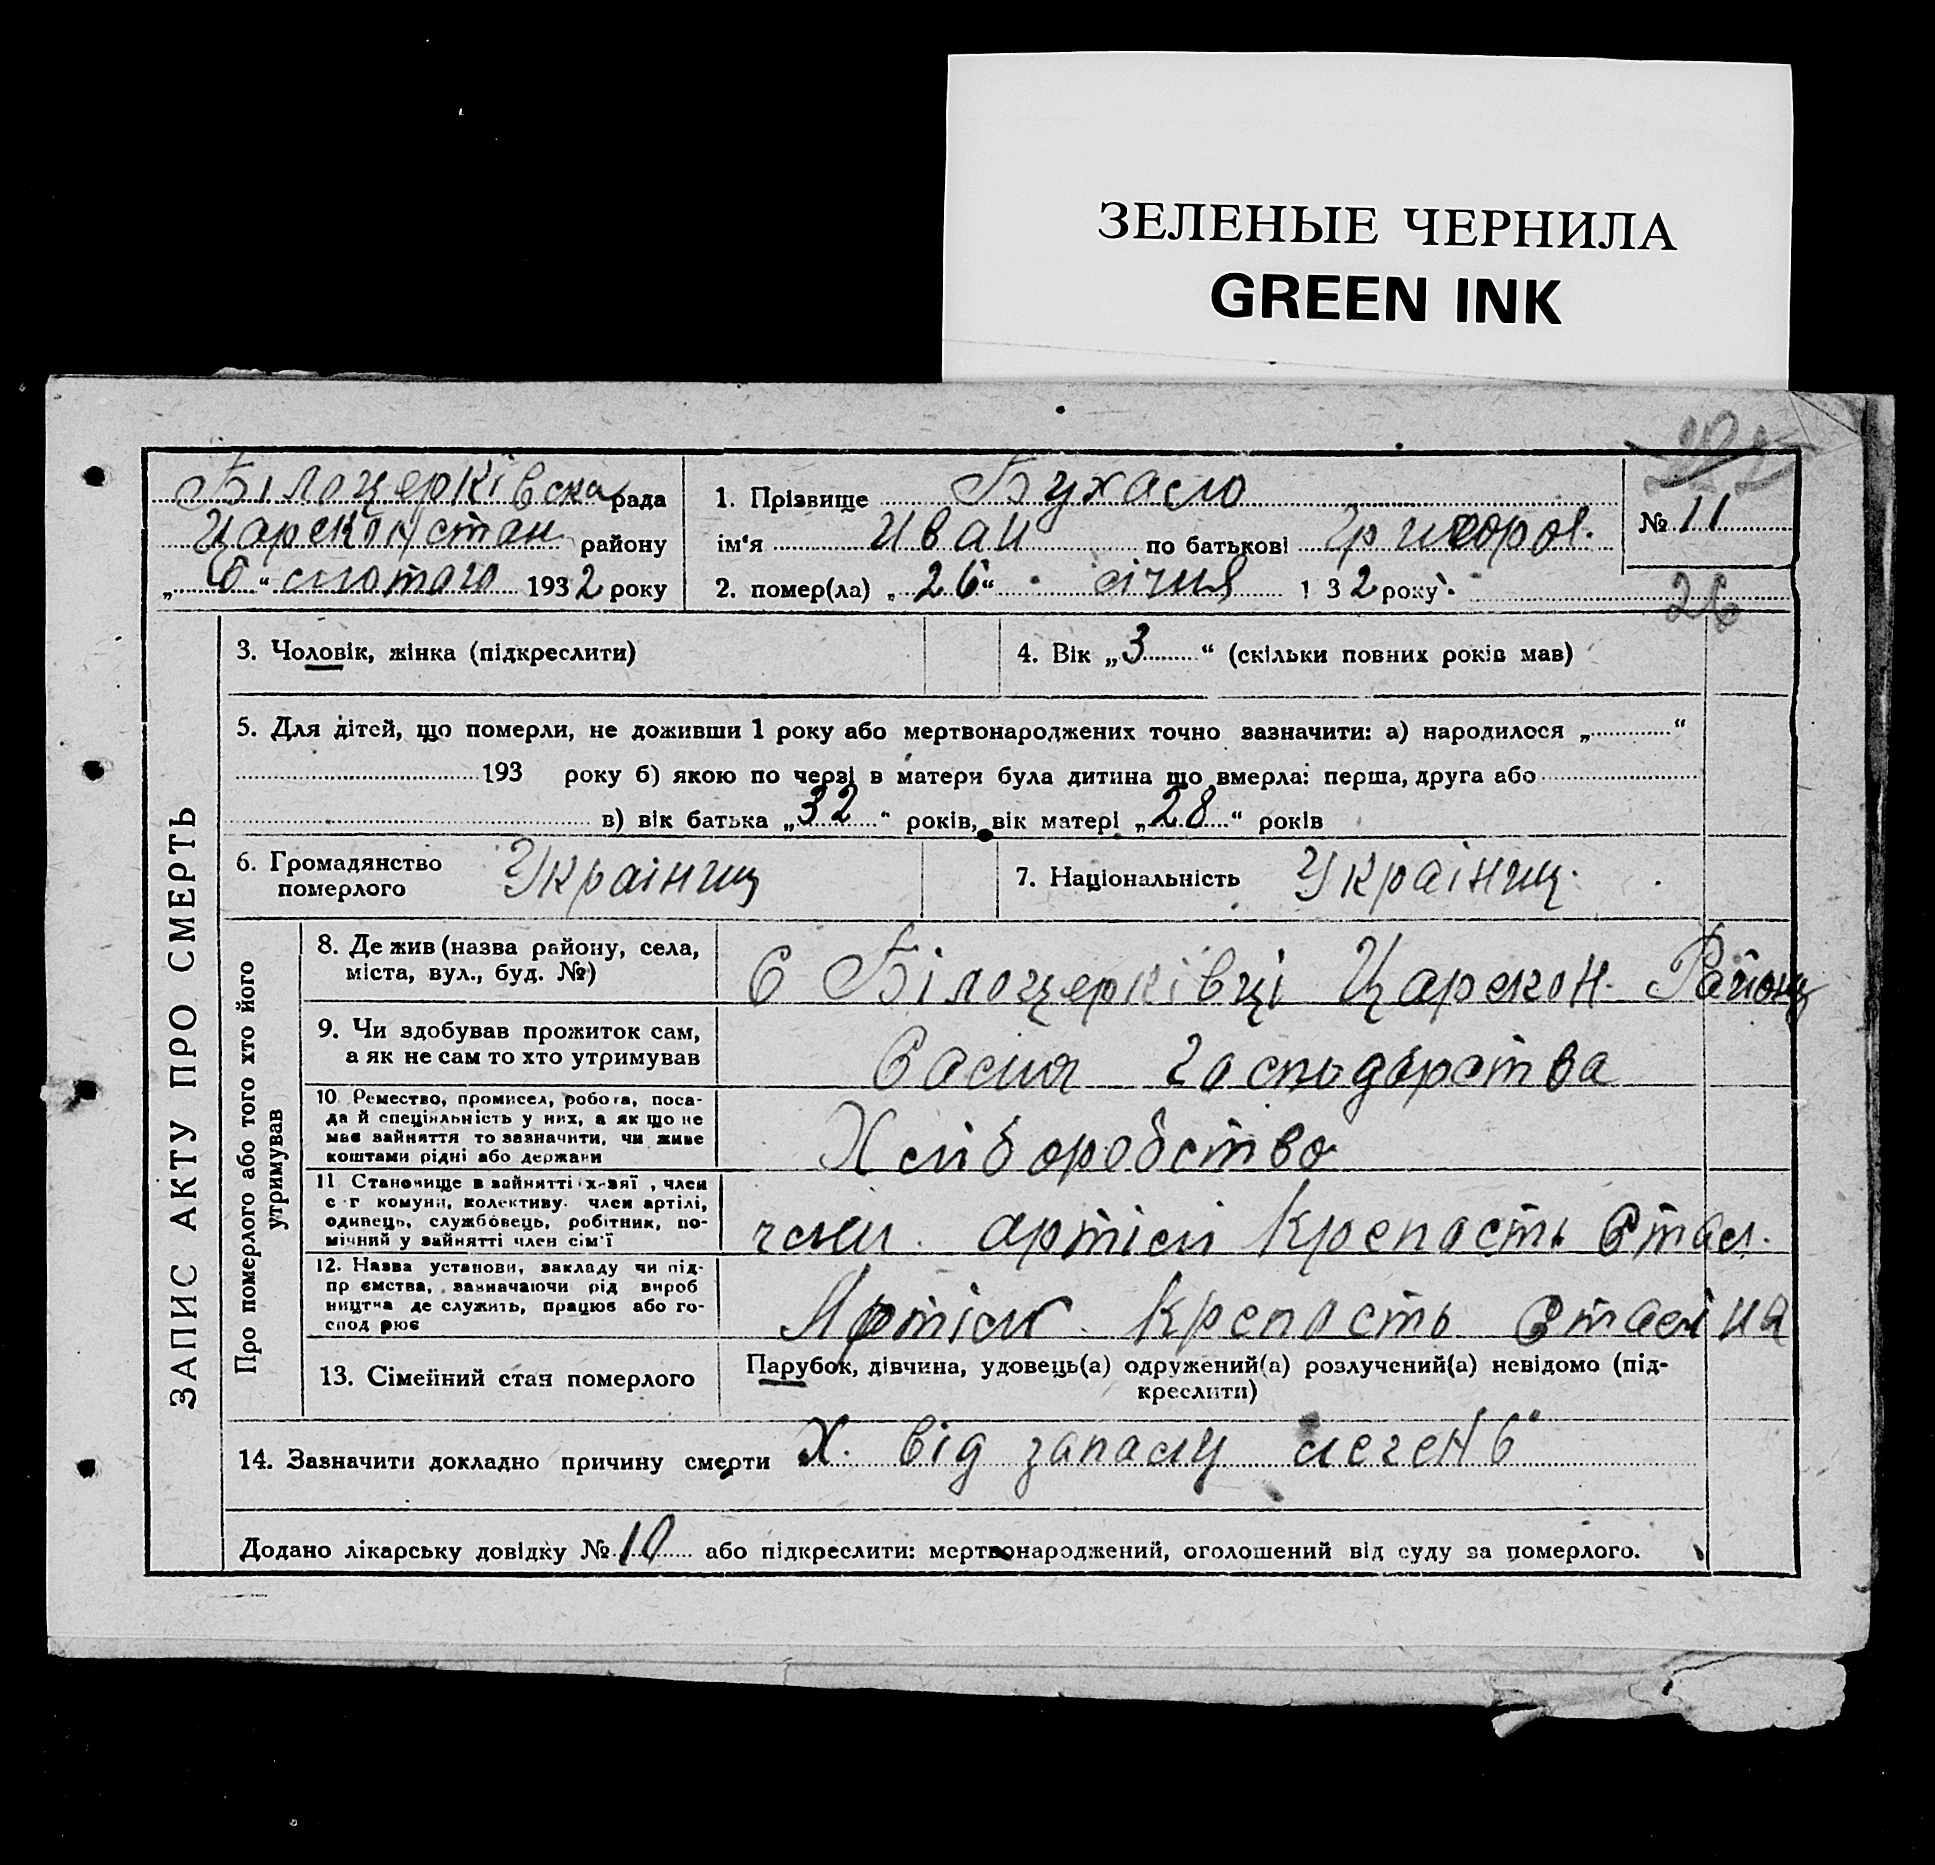 ЗЕЛЕНЫЕ ЧЕРНИЛА
GREEN INK
Білоцерківска рада
Цареконстан району
„ 6 “ лютого 1932 року
1. Прізвище Бухало
ім'я Иван по батькові Григоров.
2. помер(ла) „ 26 “ січня 1 32 року
№ 11
26
ЗАПИС АКТУ ПРО СМЕРТЬ
3. Чоловік, жінка (підкреслити)
4. Вік „ 3 “ (скільки повних років мав)
5. Для дітей, що померли, не доживши 1 року або мертвонароджених точно зазначити: а) народилося „ “
193 року б) якою по черзі в матери була дитина що вмерла: перша, друга або
в) вік батька „ 32 “ років, вік матері „ 28 “ років
6. Громадянство
померлого
Українц
7. Національність Українц.
Про померлого або того хто його
утримував
8. Де жив (назва району, села,
міста, вул., буд. №)
С Білоцерківці Царекон. Району
9. Чи здобував прожиток сам,
а як не сам то хто утримував
господарства
10 Ремество, промисел, робота, поса-
да й спеціяльність у них, а як що не
має зайняття то зазначити, чи живе
коштами рідні або держави
Хліборобство
11 Становище в зайнятті х-зяї , член
с г комуни, колективу. член артілі,
одинець, службовець, робітник, по-
мічний у зайнятті член сім'ї
член. артіли Крепость Стал.
12. Назва установи, закладу чи під-
пр ємства, зазначаючи рід вироб
ництва де служить, працює або го-
спод рює
Артіли Крепость Сталіна
13. Сімейний стан померлого
Парубок, дівчина, удовець(а) одружений(а) розлучений(а) невідомо (під-
креслити)
14. Зазначити докладно причину смерти Х. від запалу легень
Додано лікарську довідку № 10 або підкреслити: мертвонароджений, оголошений від суду за померлого.